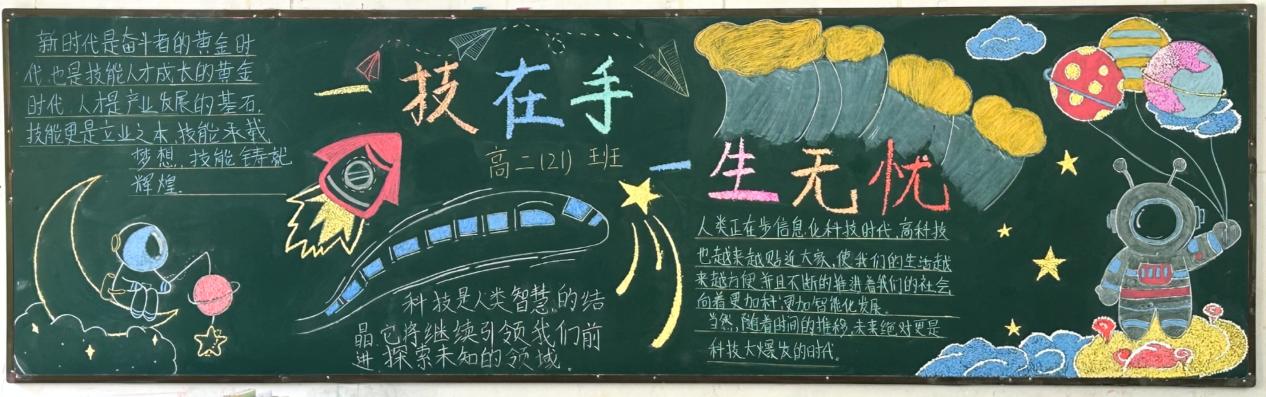 新时代是奋斗者的黄金时
代,也是技能人才成长的黄金
时代,人才是产业发展的基石,
技能更是立业之本.技能承载
梦想,技能铸就
辉煌.
一技在手
高二(21)班
一生无忧
科技是人类智慧的结
晶,它将继续引领我们前
进,探索未知的领域。
人类正在步信息化科技时代,高科技
也越来越贴近大家,使我们的生活越
来越方便,并且不断的推进着我们的社会
向着更加 更加智能化发展。
当然,随着时间的推移,未来绝对更是
科技大爆发的时代。